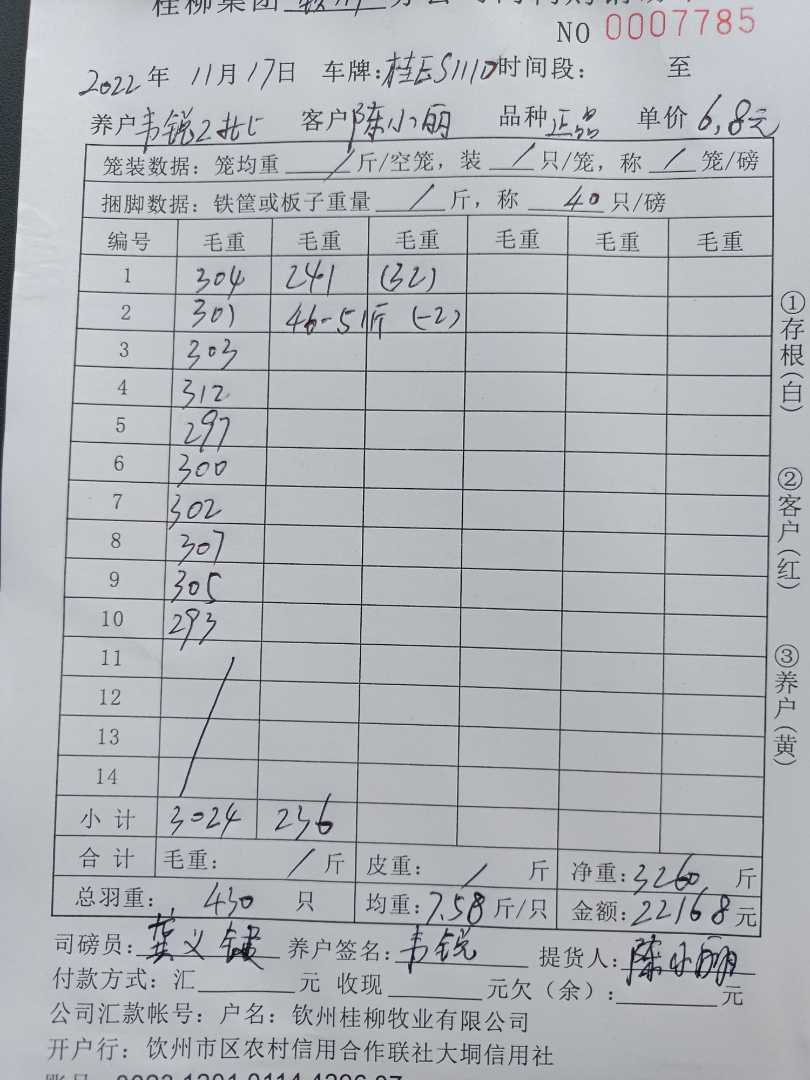 桂柳集团 钦州 分公司
NO 0007785
2022 年 11月17日 车牌:桂ES111D 时间段: 至
养户 韦锐 客户 陈小丽 品种 正品 单价 6.8元
笼装数据: 笼均重 / 斤/空笼, 装 / 只/笼, 称 / 笼/磅
捆脚数据: 铁筐或板子重量 / 斤, 称 40 只/磅
编号 毛重 毛重 毛重 毛重 毛重 毛重
1 304 241 (32)
2 301 46-5斤 (-2)
3 303
4 312
5 297
6 300
7 302
8 307
9 305
10 293
11
12
13
14
小计 3024 236
合计 毛重: / 斤 皮重: / 斤 净重: 3260 斤
总羽重: 430 只 均重: 7.58 斤/只 金额: 22168 元
司磅员: 龚义键 养户签名: 韦锐 提货人: 陈小丽
付款方式: 汇 元 收现 元欠(余): 元
公司汇款帐号: 户名: 钦州桂柳牧业有限公司
开户行: 钦州市区农村信用合作联社大垌信用社
①存根(白)
②客户(红)
③养户(黄)